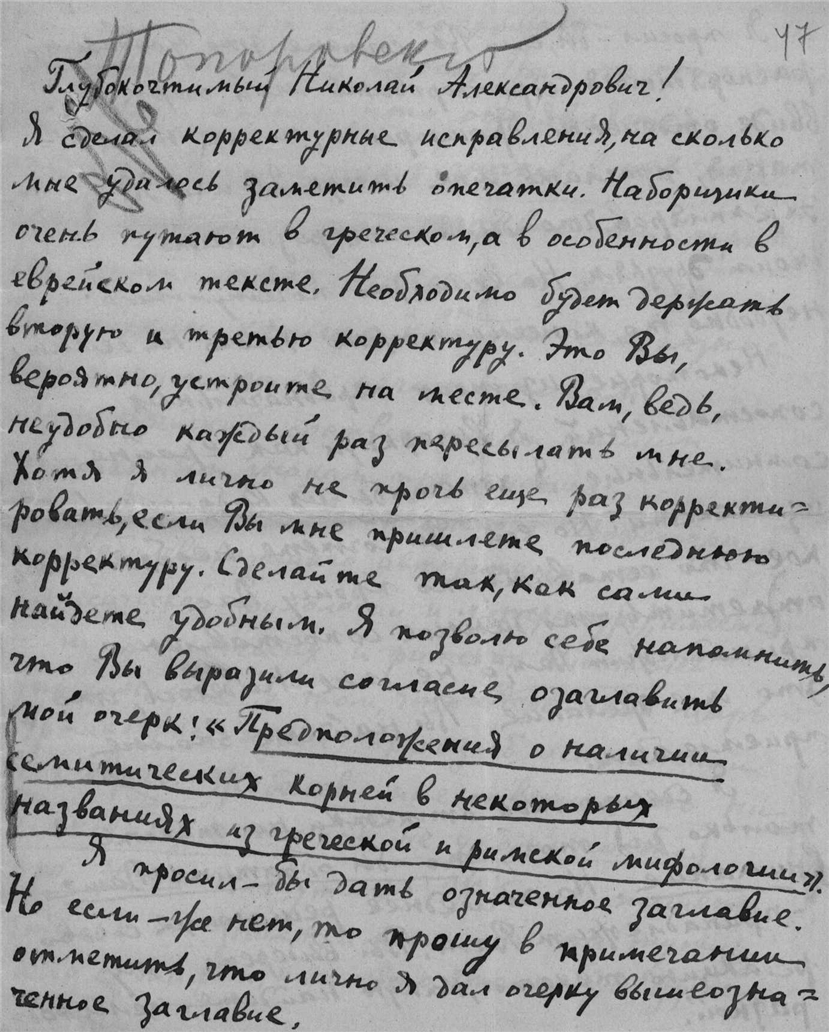 47
Топоровского
Глубокочтимый Николай Александрович!
Я сделал корректурные исправления, на сколько
мне удалось заметить опечатки. Наборщики
очень путают в греческом, а в особенности в
еврейском тексте. Необходимо будет держать
вторую и третью корректуру. Это Вы,
вероятно, устроите на месте. Вам, ведь,
неудобно каждый раз пересылать мне.
Хотя я лично не прочь еще раз корректи=
ровать, если Вы мне пришлете последнюю
корректуру. Сделайте так, как сами
найдете удобным. Я позволю себе напомнить,
что Вы выразили согласие озаглавить
мой очерк: «Предположения о наличии
семитических корней в некоторых
названиях из греческой и римской мифологии».
Я просил-бы дать означенное заглавие.
Но если-же нет, то прошу в примечании
отметить, что лично я дал очерку вышеозна=
ченное заглавие.